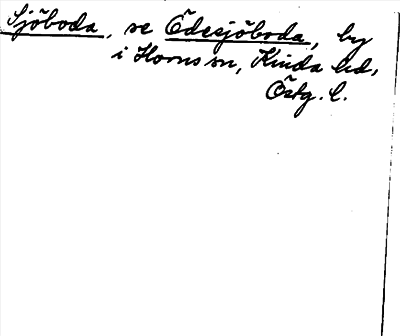 Sjöboda, se Ödesjöboda, by
i Horns sn, Kinda hd,
Östg. l.